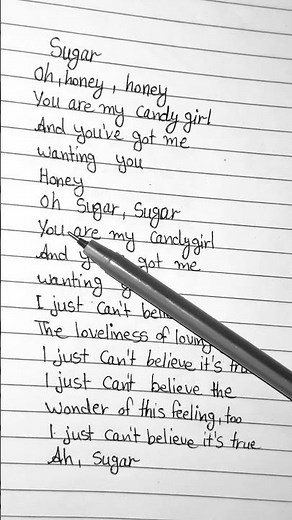 Sugar
Oh, honey, honey
You are my candy girl
And you've got me
wanting you
Honey
Oh Sugar, Sugar
You are my candygirl
And got me
wanting
I just can't
The loveliness of
I just can't believe it's
I just can't believe the
wonder of this feeling, too
I just can't believe it's true
Ah, Sugar